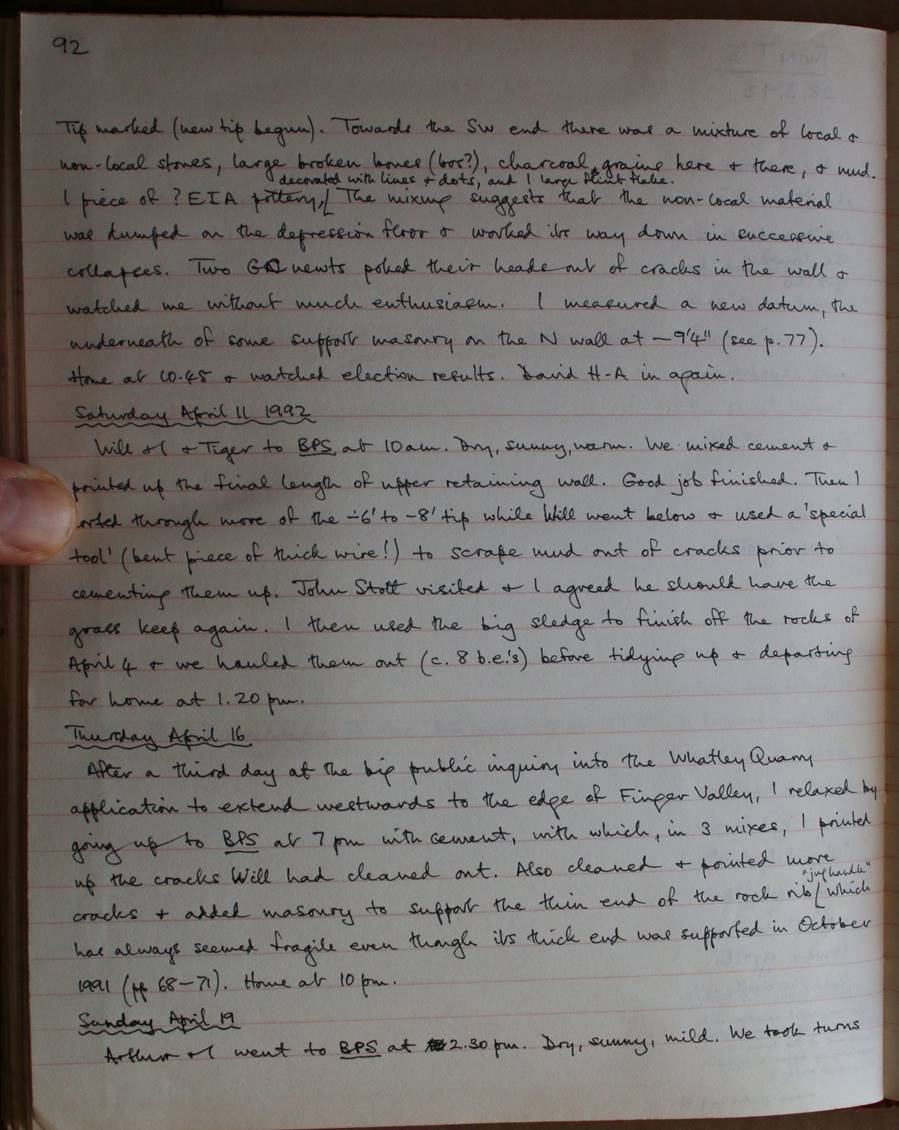 92
Tip marked (new tip begun). Towards the SW end there was a mixture of local &
non-local stones, large broken bones (bos?), charcoal grains here & there, & mud.
decorated with lines & dots, and 1 large flint flake.
1 piece of ? EIA pottery, [ The mixing suggests that the non-local material
was dumped on the depression floor & worked its way down in successive
collapses. Two GC newts poked their heads out of cracks in the wall &
watched me without much enthusiasm. I measured a new datum, the
underneath of some support masonry on the N wall at -9'4" (see p.77).
Home at 10.45 & watched election results. David H-A in again.
Saturday April 11 1992
Will & I & Tiger to BPS at 10am. Dry, sunny, warm. We mixed cement &
pointed up the final length of upper retaining wall. Good job finished. Then I
orted through more of the -6' to -8' tip while Will went below & used a 'special
tool' (bent piece of thick wire!) to scrape mud out of cracks prior to
cementing them up. John Stott visited & I agreed he should have the
grass keep again. I then used the big sledge to finish off the rocks of
April 4 & we hauled them out (c. 8 b.e.'s) before tidying up & departing
for home at 1.20 pm.
Thursday April 16
After a third day at the big public inquiry into the Whatley Quarry
application to extend westwards to the edge of Finger Valley, I relaxed by
going up to BPS at 7 pm with cement, with which, in 3 mixes, I pointed
up the cracks Will had cleaned out. Also cleaned & pointed more
"jug handle"
cracks & added masonry to support the thin end of the rock rib [ which
has always seemed fragile even though its thick end was supported in October
1991 (pp 68-71). Home at 10 pm.
Sunday April 19
Arthur & I went to BPS at 2.30 pm. Dry, sunny, mild. We took turns